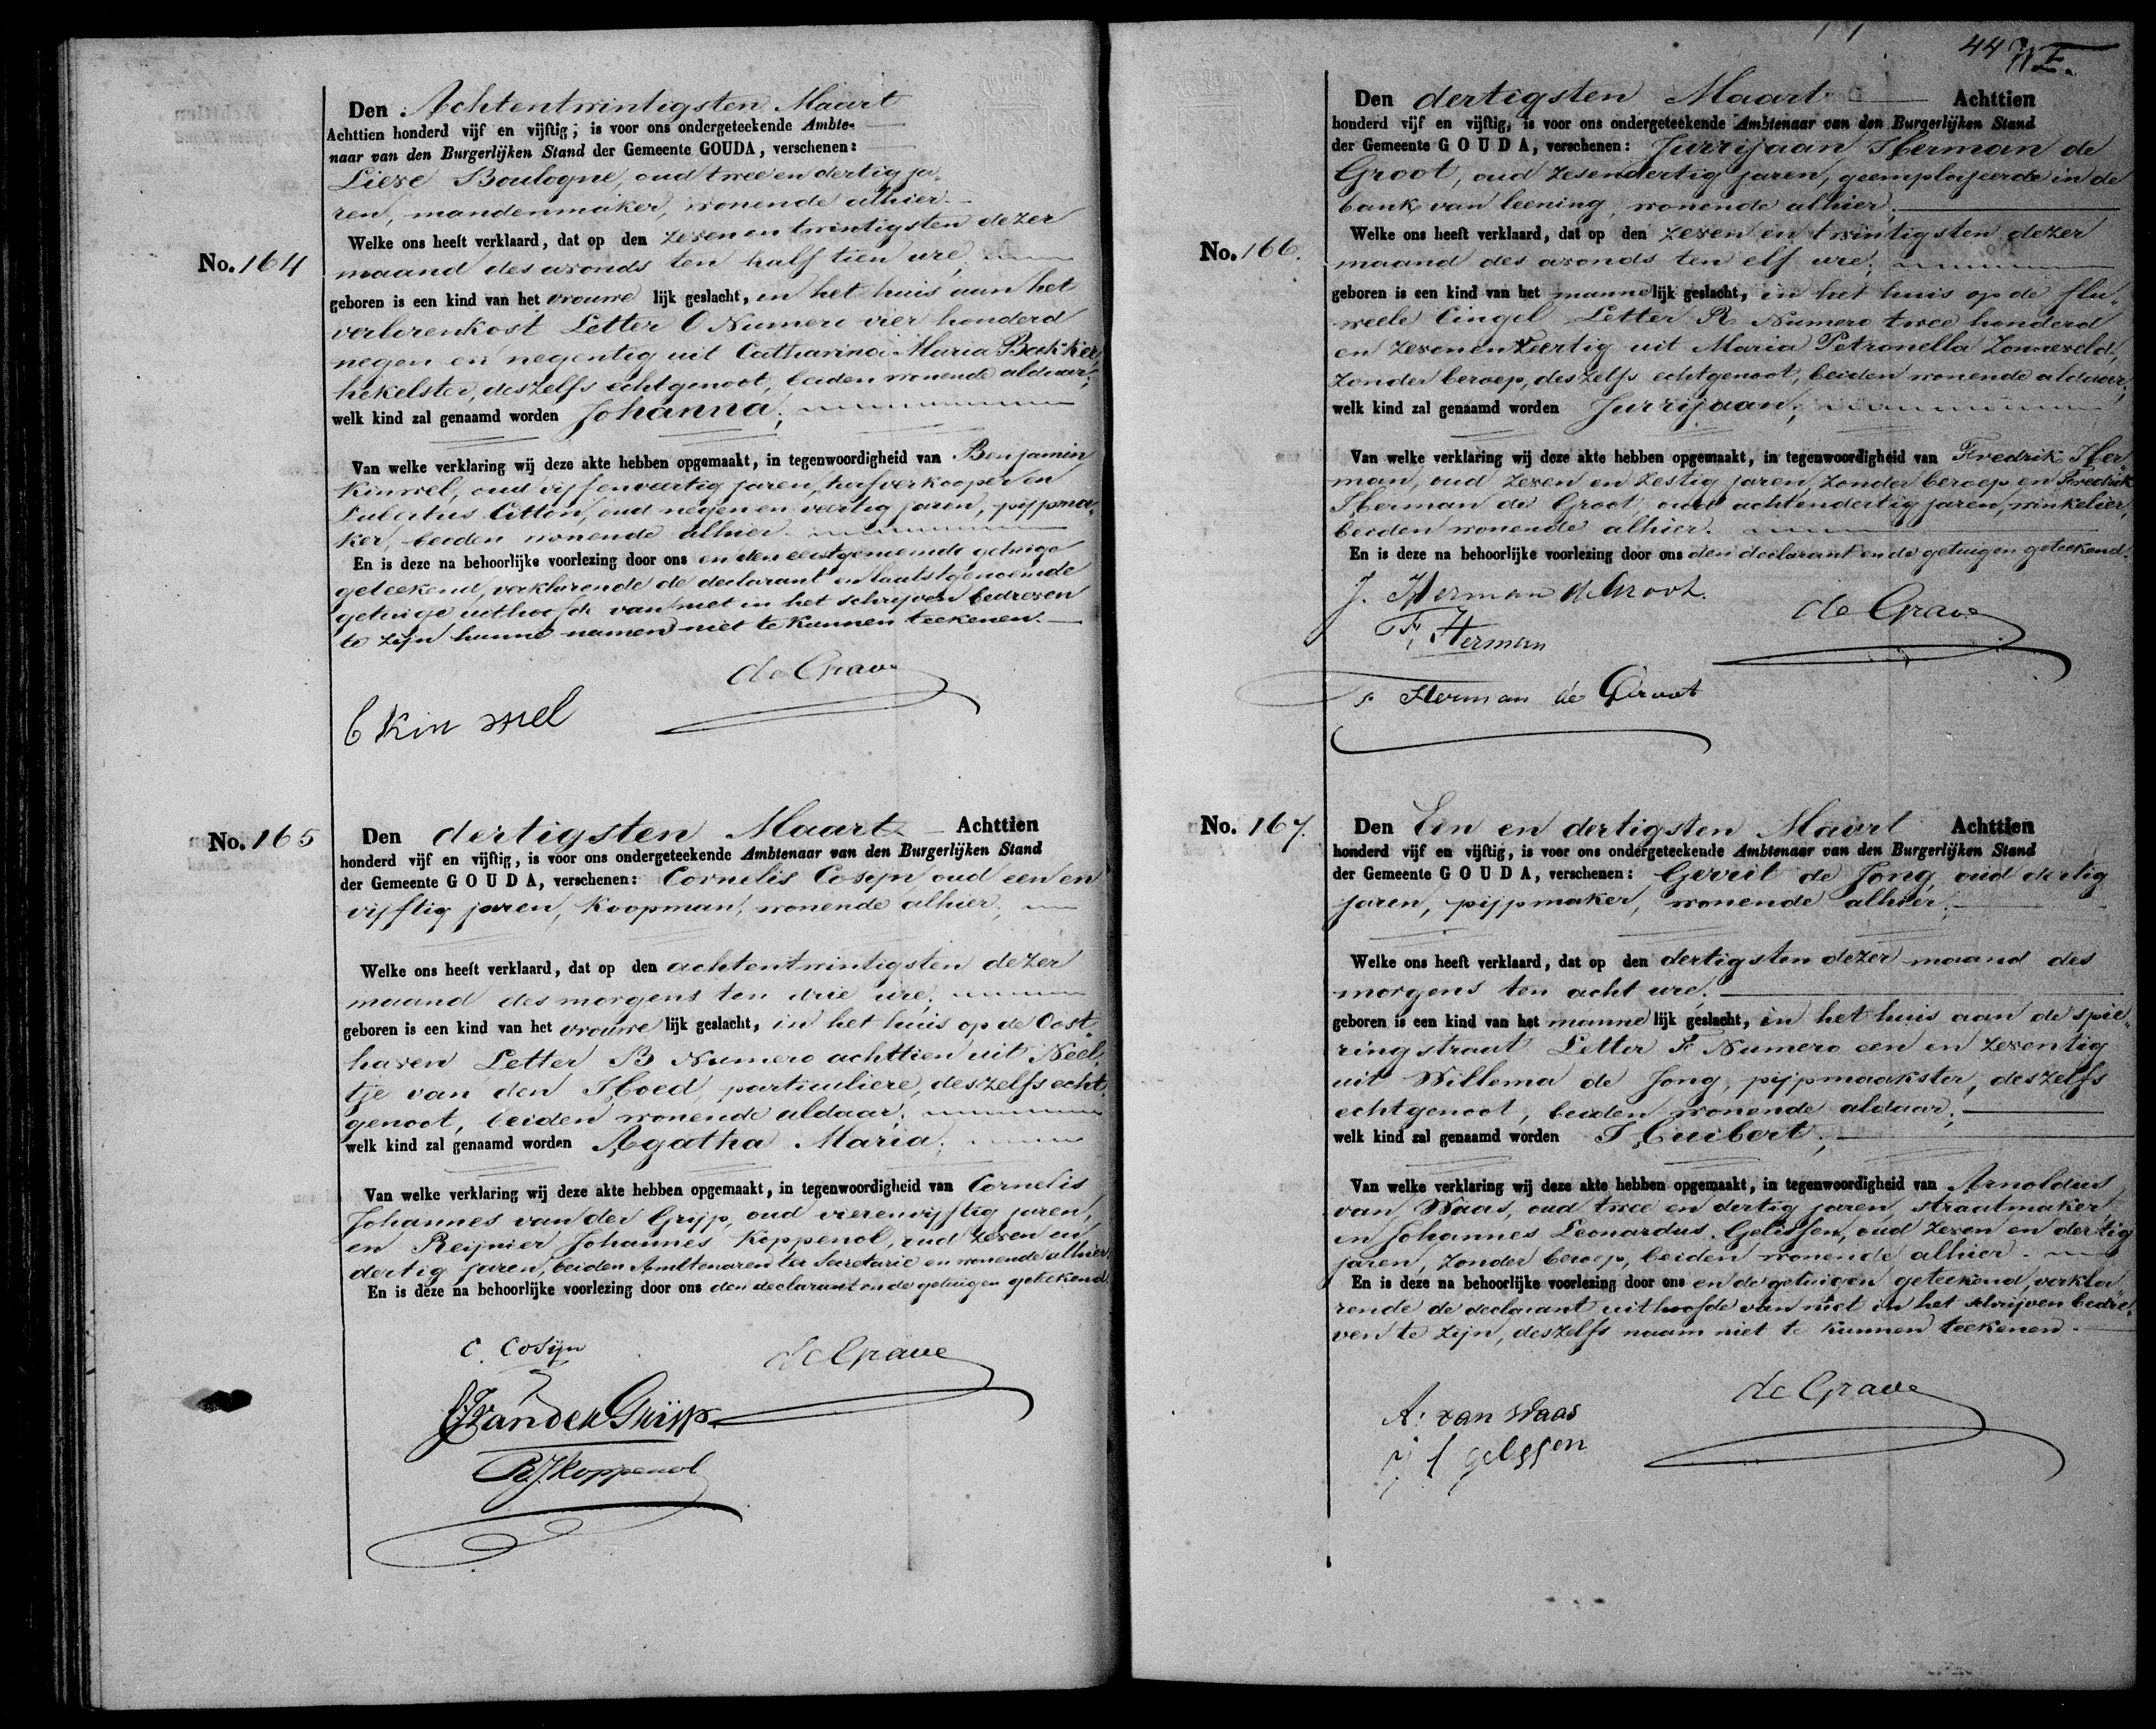 No. 164
Den Achtentwintigsten Maart
Achttien honderd vijf en vijftig; is voor ons ondergeteekende Ambte-
naar van den Burgerlijken Stand der Gemeente GOUDA, verschenen:
Lieve Boulogne, oud twee en dertig ja-
ren, mandenmaker, wonende alhier.
Welke ons heeft verklaard, dat op den zeven en twintigsten dezer
maand des avonds ten half tien ure,
geboren is een kind van het vrouwe lijk geslacht, in het huis aan het
verlorenkost Letter O Numero vier honderd
negen en negentig uit Catharina Maria Bakker
hekelster, deszelfs echtgenoot, beiden wonende aldaar;
welk kind zal genaamd worden Johanna;
Van welke verklaring wij deze akte hebben opgemaakt, in tegenwoordigheid van Benjamin
Kinwel, oud vijf en veertig jaren, turfverkooper en
Lubertus Citton, oud negen en veertig jaren, pijpma-
ker, beiden wonende alhier.
En is deze na behoorlijke voorlezing door ons en den eerstgenoemde getuige
geteekend, verklarende de declarant en laatstgenoemde
getuige uithoofde van niet in het schrijven bedreven
te zijn hunne namen niet te kunnen teekenen.
de Grave
b Kin wel
No. 165
Den dertigsten Maart Achttien
honderd vijf en vijftig, is voor ons ondergeteekende Ambtenaar van den Burgerlijken Stand
der Gemeente GOUDA, verschenen: Cornelis Cosijn, oud een en
vijftig jaren, Koopman, wonende alhier;
Welke ons heeft verklaard, dat op den achtentwintigsten dezer
maand des morgens ten drie ure,
geboren is een kind van het vrouwe lijk geslacht, in het huis op de Oost-
haven Letter B Numero achttien uit Neel-
tje van den Hoed, particuliere, deszelfs echt-
genoot, beiden wonende aldaar,
welk kind zal genaamd worden Agatha Maria;
Van welke verklaring wij deze akte hebben opgemaakt, in tegenwoordigheid van Cornelis
Johannes van der Grijp, oud vierenvijftig jaren,
en Reijnier Johannes Koppenol, oud zeven en
dertig jaren, beiden Ambtenaren ter Secretarie en wonende alhier.
En is deze na behoorlijke voorlezing door ons den declarant en de getuigen geteekend.
C. Cosijn
de Grave
van der Grijp
R J Koppenol
44
No. 166.
Den dertigsten Maart Achttien
honderd vijf en vijftig, is voor ons ondergeteekende Ambtenaar van den Burgerlijken Stand
der Gemeente GOUDA, verschenen: Jurrijaan Herman de
Groot, oud zesendertig jaren, geemploijeerde in de
bank van leening, wonende alhier;
Welke ons heeft verklaard, dat op den zeven en twintigsten dezer
maand des avonds ten elf ure;
geboren is een kind van het manne lijk geslacht, in het huis op de flu-
weele Cingel Letter R Numero twee honderd
en zevenenveertig uit Maria Petronella Zonneveld,
zonder beroep, deszelfs echtgenoot, beiden wonende aldaar;
welk kind zal genaamd worden Jurrijaan;
Van welke verklaring wij deze akte hebben opgemaakt, in tegenwoordigheid van Fredrik Her-
man, oud zeven en zestig jaren, zonder beroep en Fredrik
Herman de Groot, oud achtendertig jaren, winkelier,
beiden wonende alhier.
En is deze na behoorlijke voorlezing door ons den declarant en de getuigen geteekend.
J. Herman de Groot.
de Grave
F. Herman
F Herman de Groot
No. 167.
Den Een en dertigsten Maart Achttien
honderd vijf en vijftig, is voor ons ondergeteekende Ambtenaar van den Burgerlijken Stand
der Gemeente GOUDA, verschenen: Gerrit de Jong, oud dertig
jaren, pijpmaker, wonende alhier;
Welke ons heeft verklaard, dat op den dertigsten dezer maand des
morgens ten acht ure;
geboren is een kind van het manne lijk geslacht, in het huis aan de spie-
ringstraat Letter F Numero een en zeventig
uit Willema de Jong, pijpmaakster, deszelfs
echtgenoot, beiden wonende aldaar;
welk kind zal genaamd worden Huibert;
Van welke verklaring wij deze akte hebben opgemaakt, in tegenwoordigheid van Arnoldus
van Waas, oud twee en dertig jaren, straatmaker,
en Johannes Leonardus Gelissen, oud zeven en dertig
jaren, zonder beroep, beiden wonende alhier.
En is deze na behoorlijke voorlezing door ons en de getuigen geteekend, verkla-
rende de declarant uithoofde van niet in het schrijven bedre-
ven te zijn, deszelfs naam niet te kunnen teekenen.
de Grave
A. van Waas
j l gelissen